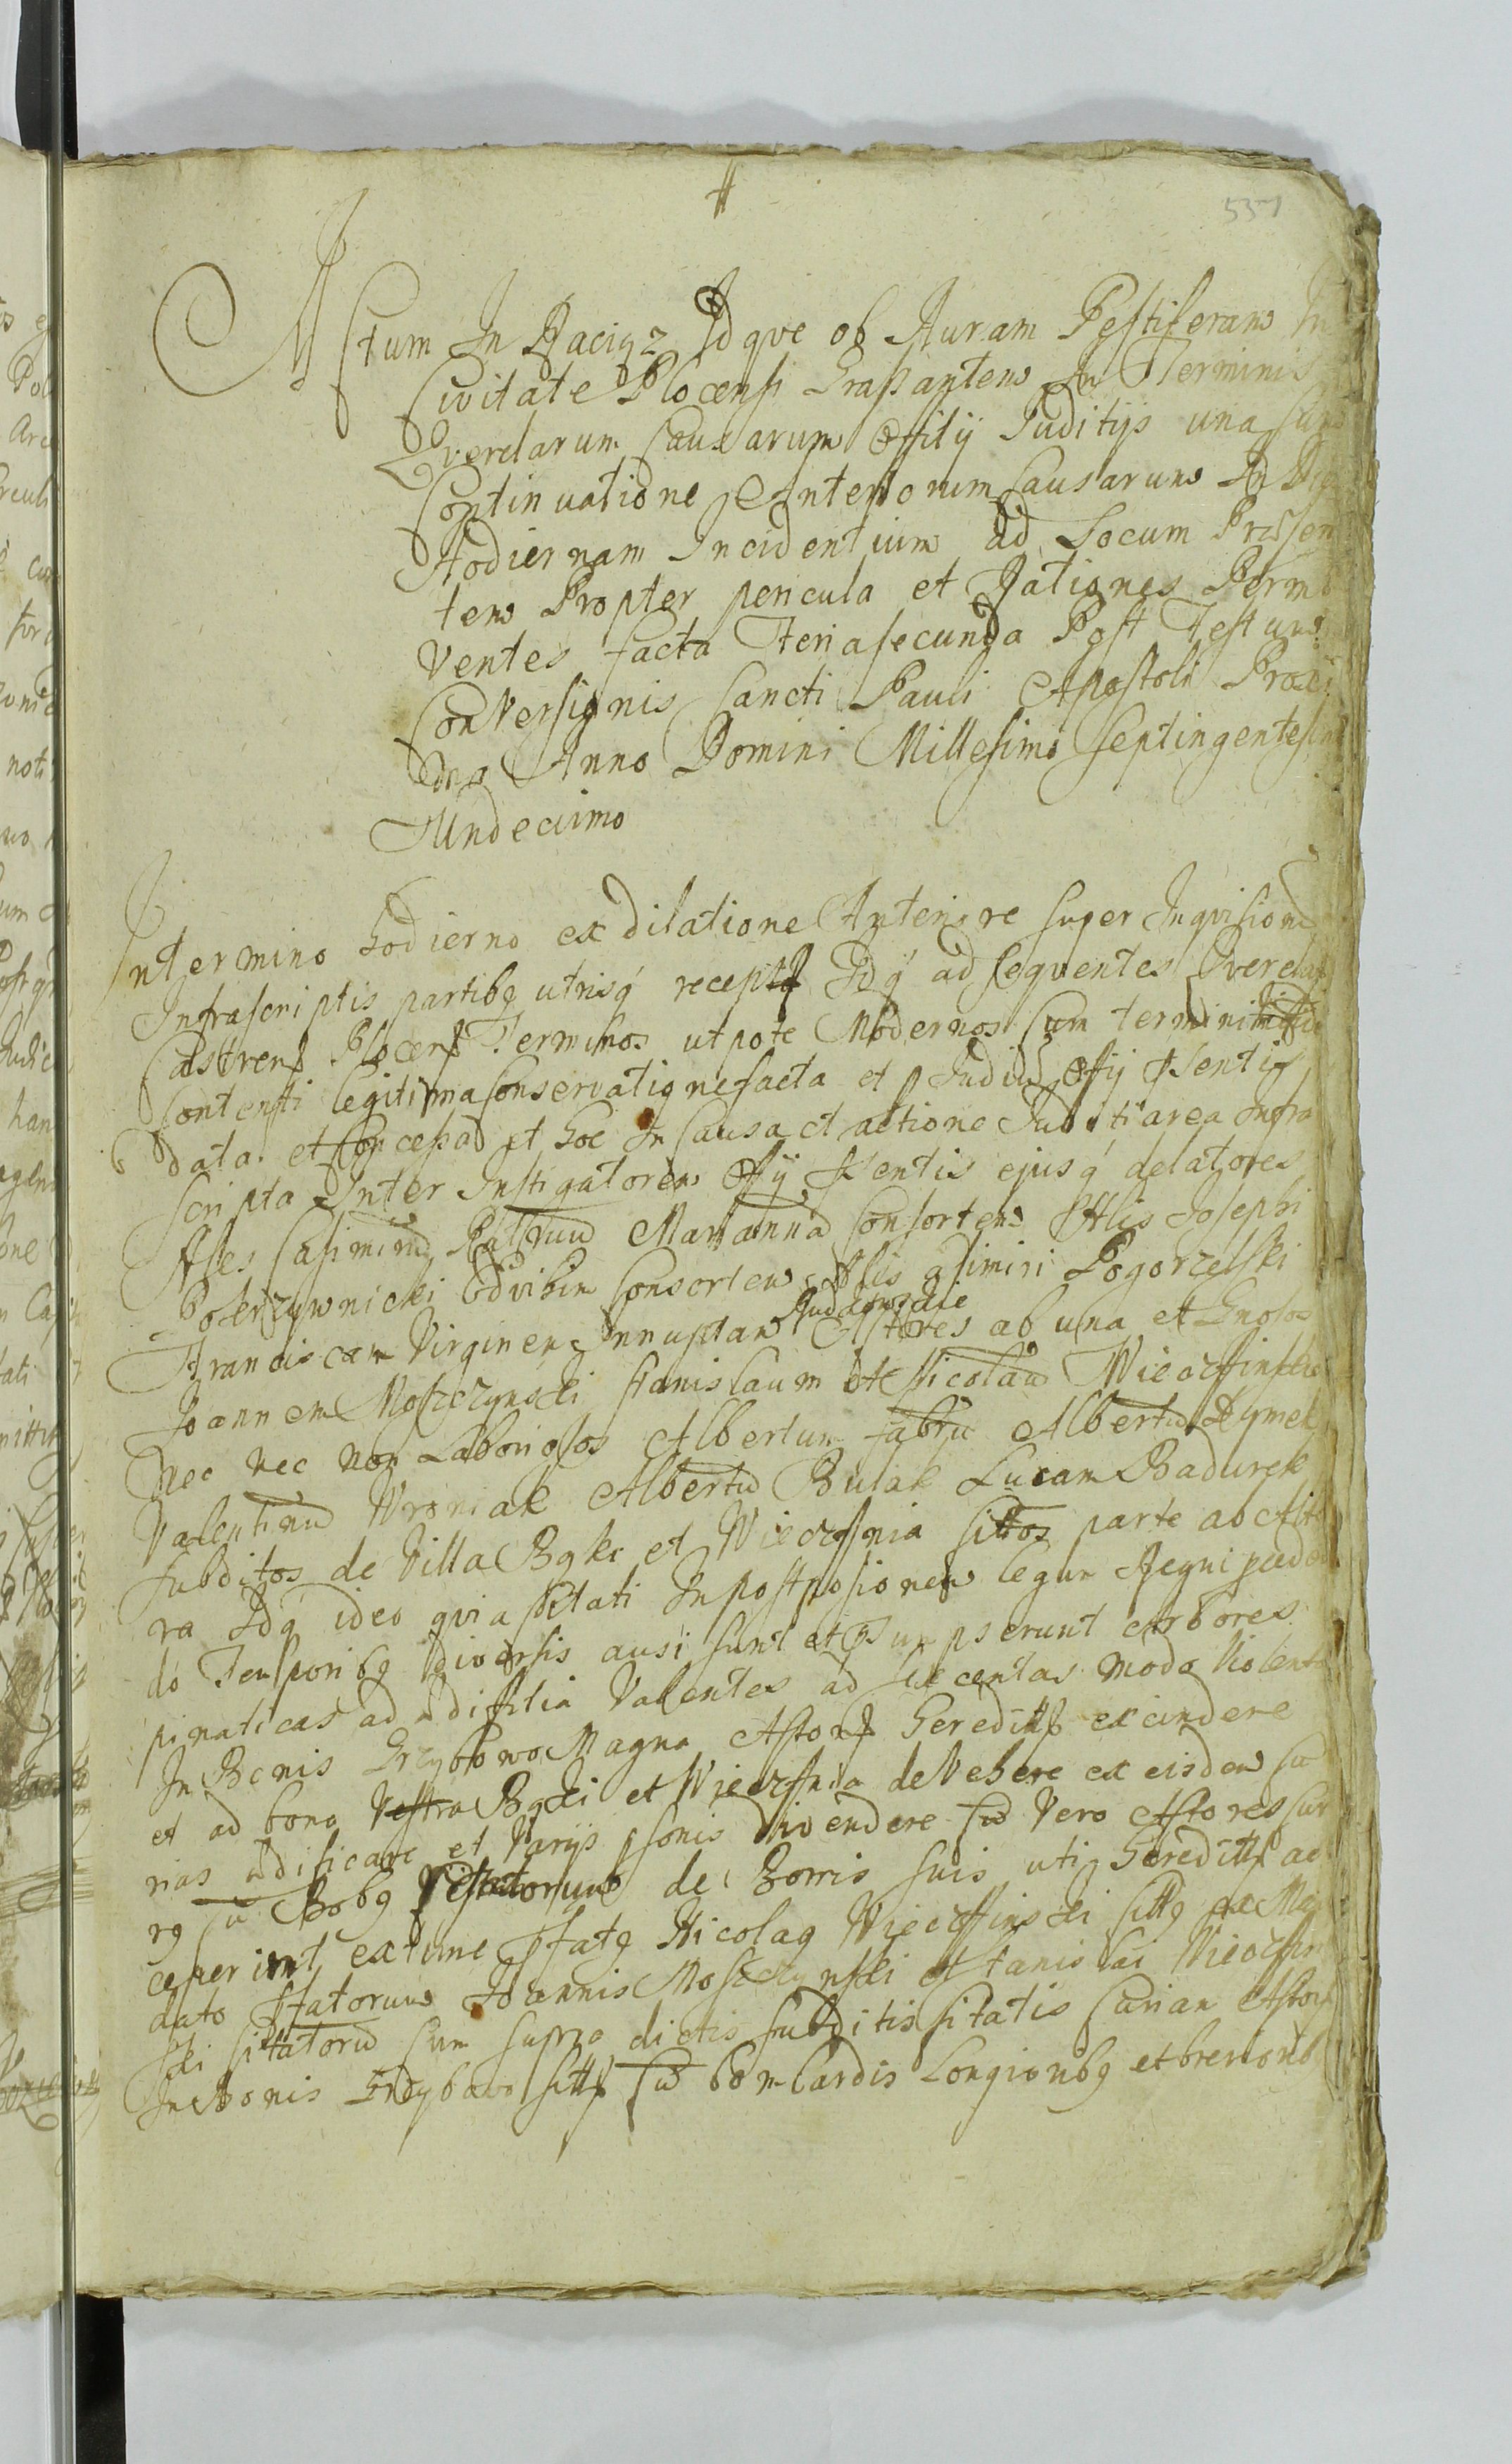 531
Actum In Raciąz Id qve ob Auram Pestiferam In
Civitate Plocensi Grassantem In Terminis
Qverelarum Causarum Offitij Juditijs una cum
Continuatione Anteriorum Causarum In
Hodiernam Incidentium ad Locum Præsen
tem Propter pericula et Rationes Permo
ventes facta Feria secunda Post Festum
Conversionis Sancti Pauli Apostoli Proxi
Anno Domini Millesimo Septingentesimo
Undecimo
In termino hodierno ex dilatione Anteriore super Inqvisiones
Infrascriptis partibq utrisq recept Idq ad seqventes Qverelar
Castrens Plocens Terminos utpote Modernos Cum termini
Contenti legitima Conservatione facta et p Judiciu Offij psentis
data et Concessa et hoc In Causa et actione Juditiarea Infra
scripta Inter Instigatorem Offij psentis ejusq delatores
Casimirum Mariannã Consortem Josephi
Consortem Pogorzelski
Franciscam Virginem Innuptam Actores ab una et Gnosos
Joannem Moszczynski Stanislaum et Nicolaũ Wieczfinskie
Nec nec non Laboriosos Albertum fabrũ Albertũ
Valentinũ Wroniak Albertũ Bulak Lucam Badurek
subditos de Villa Bąki et Wieczfnia Cittos parte ab alte
ra Idq ideo qvia Citati In postposionem legum Regni
do Temporibq diversis ausi sunt et psumpserunt arbores
pinaticas ad ædifitia Valentes ad sexcentas modo Violento
In Bonis Grzybowo Magna Actorũ heredittĩ excindere
et ad bona Vestra Bąki et Wieczfnia deVehere ex eisdem
rias ædificare et Varijs psonis divendere Cũ Vero Actores
rq cũ Bobq Citatorum de Borris suis uti heredittĩ ac
ceperint extunc pfatq Nicolaq Wieczfinski Cittq ex Man
dato pfatorum Joannis Moszczynski et Stanislai Wieczfin
ski Citatorũ Cum supra dictis subditis Citatis Curiam Actor
In Bonis Grzybowo sitt Cũ bombardis Longioribq et breviorib